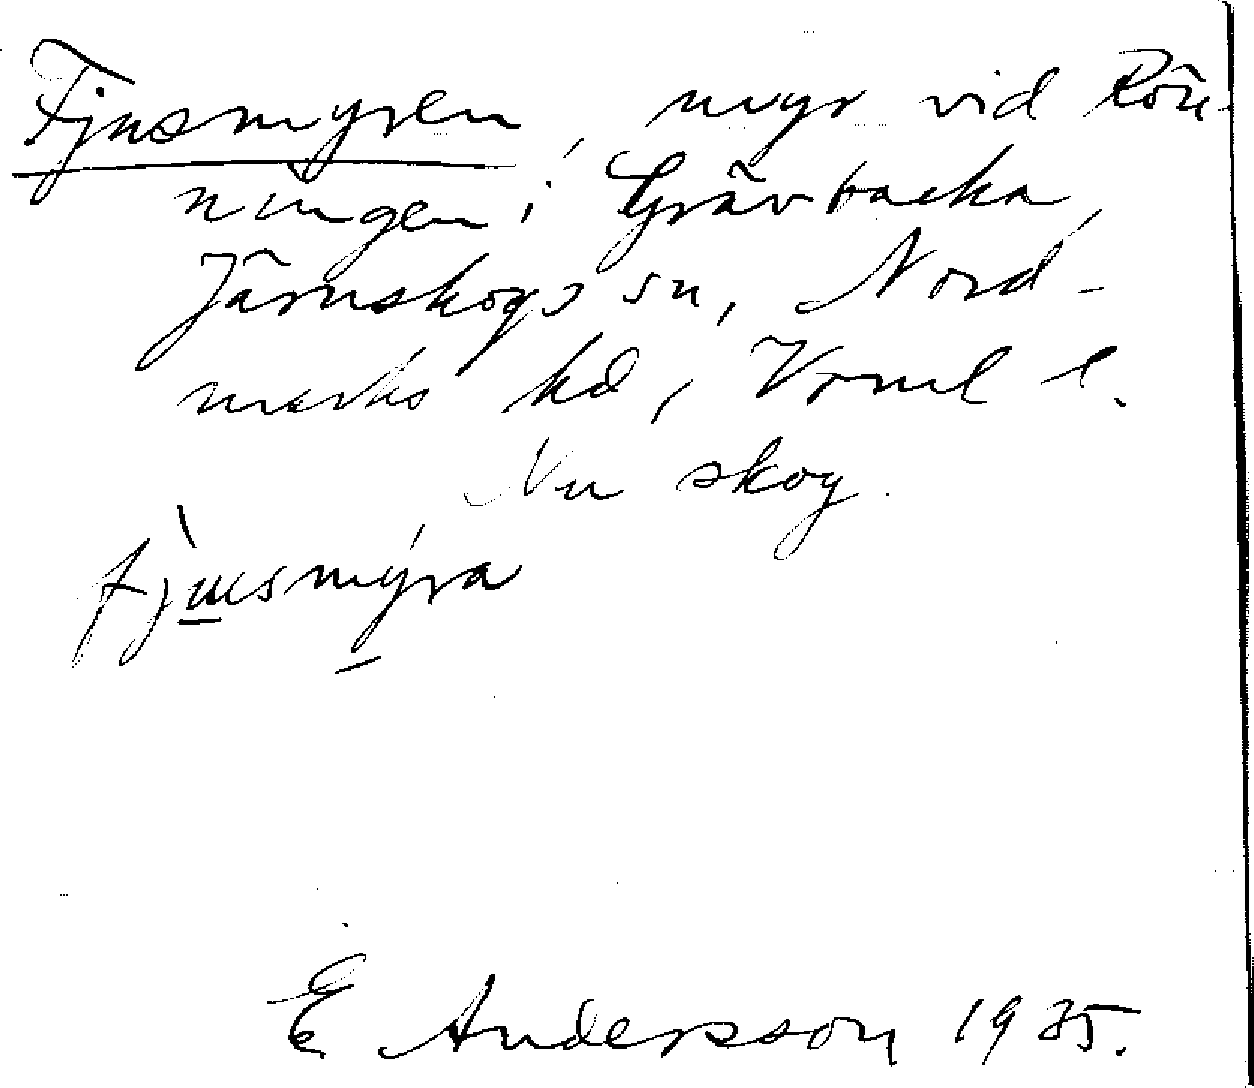 Fjusmyren, myr vid Rön-
ningen i Grävbacka,
Järnskogs sn, Nord-
marks hd, Vrml l.
Nu skog.
fjùsmýra
E Andersson 1935.